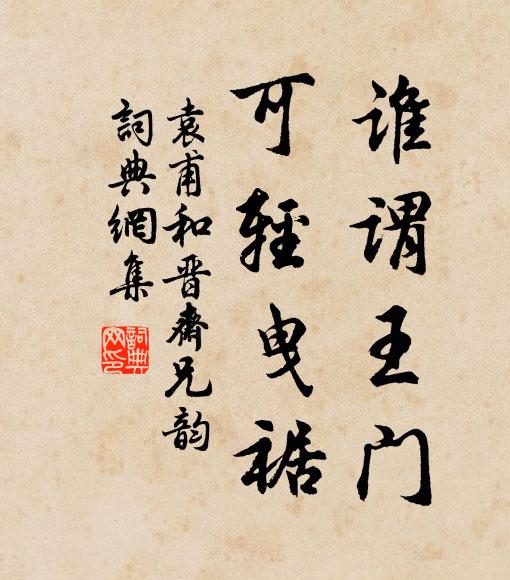 谁谓王门
可轻曳裾
袁甫和晋斋兄韵
词典网集
詞典网印